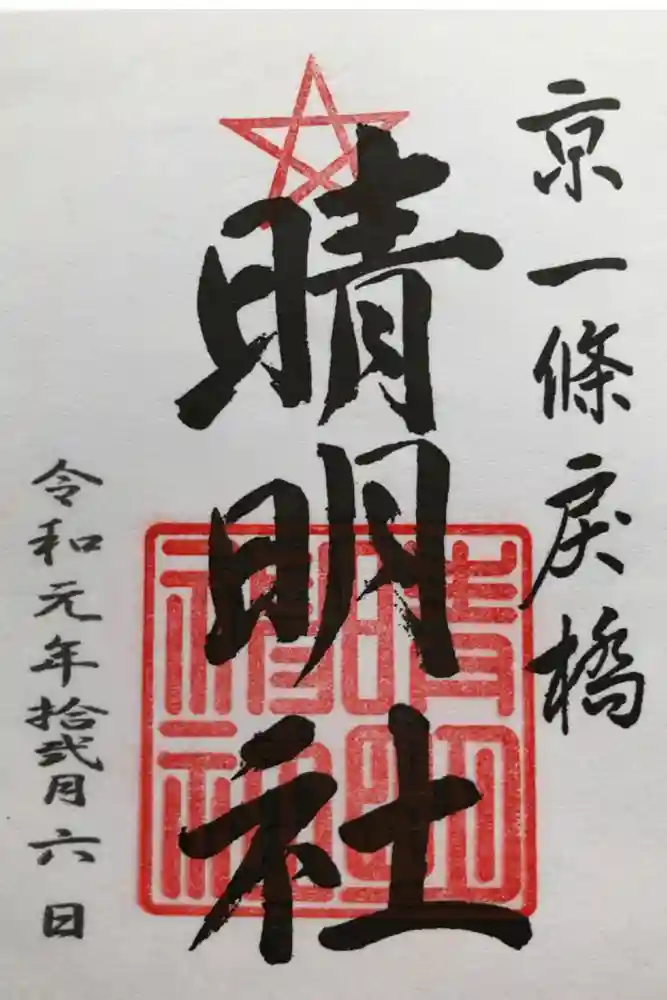 京一條戻橋
晴明社
令和元年拾弐月六日